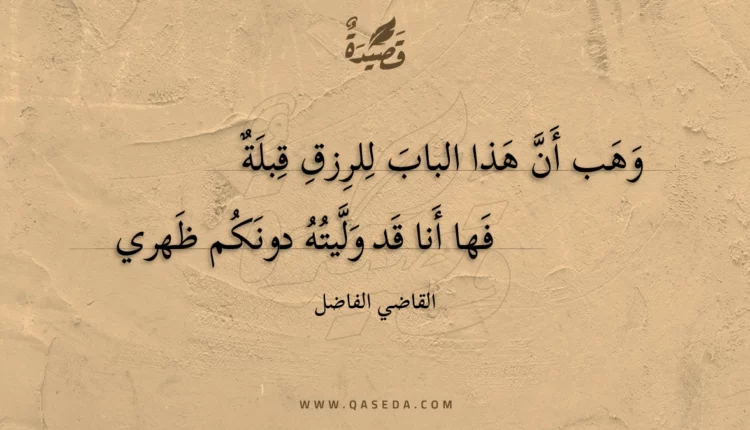 قَصِيْدَةٌ
وَهَب أَنَّ هَذا البابَ لِلرِزقِ قِبلَةٌ
فَها أَنا قَد وَلَّيتُهُ دونَكُم ظَهري
القاضي الفاضل
WWW.QASEDA.COM